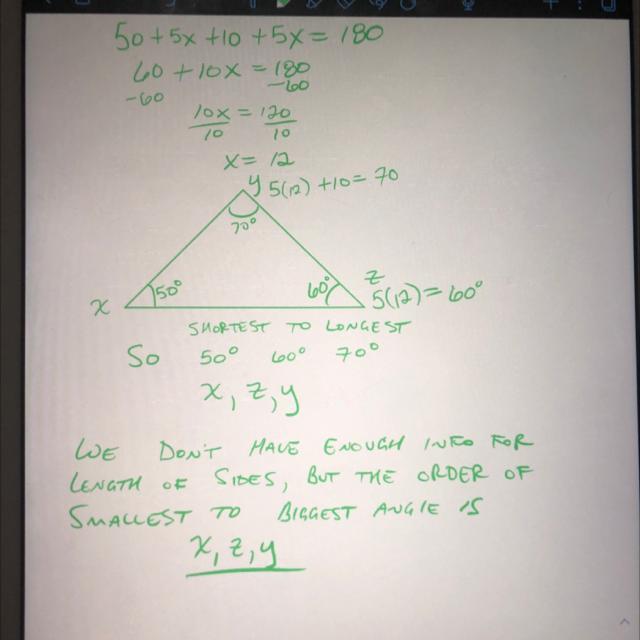 50 + 5x + 10 + 5x = 180
60 + 10x = 180
-60 -60
10x = 120
10 10
x = 12
y 5(12) + 10 = 70
70°
z
x 50° 60° 5(12) = 60°
SHORTEST TO LONGEST
So 50° 60° 70°
x, z, y
WE DON'T HAVE ENOUGH INFO FOR
LENGTH OF SIDES, BUT THE ORDER OF
SMALLEST TO BIGGEST ANGLE IS
x, z, y